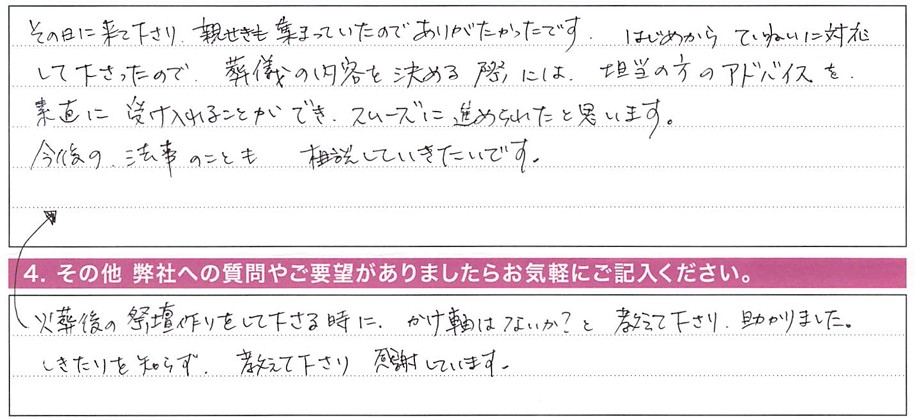 その日に来て下さり、親せきも集まっていたのでありがたかったです。はじめから ていねいに対応
して下さったので、葬儀の内容を決める際には、担当の方のアドバイスを、
素直に受け入れることができ、スムーズに進められたと思います。
今後の、法事のことも 相談していきたいです。
4. その他 弊社への質問やご要望がありましたらお気軽にご記入ください。
火葬後の祭壇作りをして下さる時に、かけ軸はないか?と 教えて下さり、助かりました。
しきたりを知らず、教えて下さり 感謝しています。